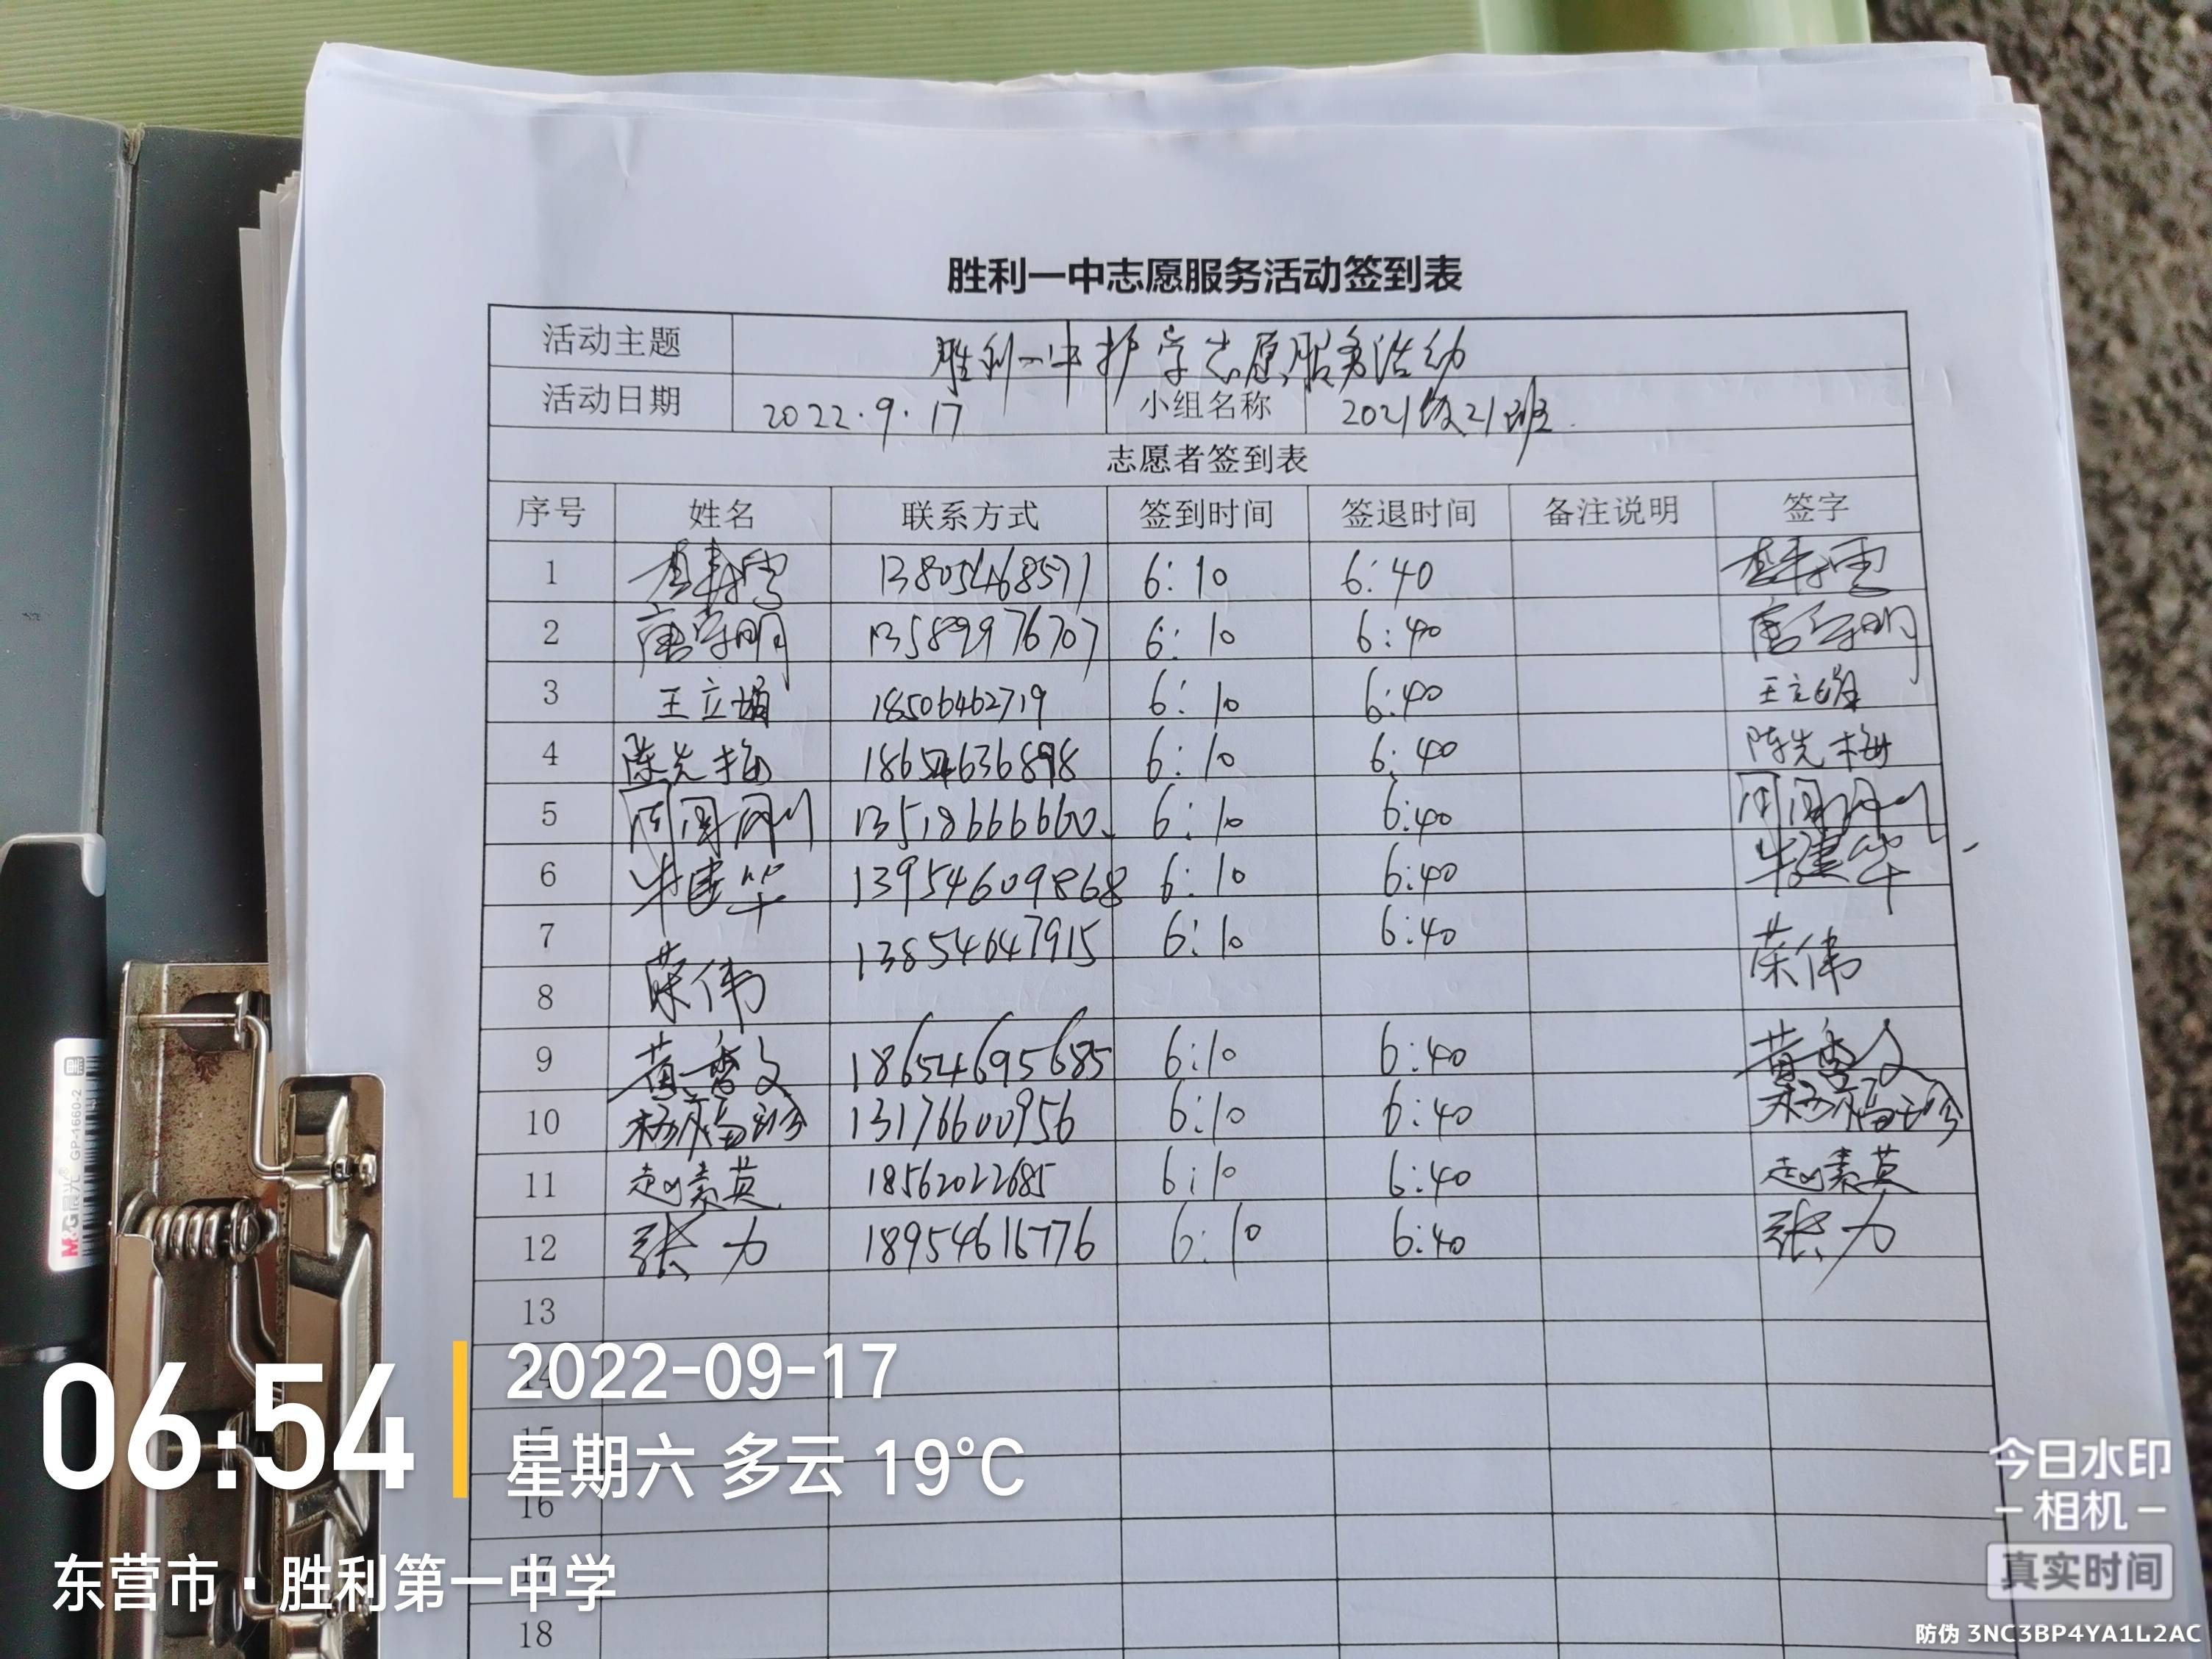 胜利一中志愿服务活动签到表
活动主题 胜利一中护学志愿服务活动
活动日期 2022.9.17 小组名称 2021级21班
志愿者签到表
序号 姓名 联系方式 签到时间 签退时间 备注说明 签字
1 13805468571 6:10 6:40
2 唐守明 13589976707 6:10 6:40 唐守明
3 王立 18506462719 6:10 6:40 王立
4 陈先梅 18654636898 6:10 6:40 陈先梅
5 周国 13518666660 6:10 6:40 周国
6 牛建华 13954609868 6:10 6:40 牛建华
7 荣伟 13854647915 6:10 6:40 荣伟
8
9 黄香文 18654695685 6:10 6:40 黄香文
10 杨福珍 13176600956 6:10 6:40 杨福珍
11 赵素英 18562022685 6:10 6:40 赵素英
12 张力 18954616776 6:10 6:40 张力
13
14
15
16
17
18
06:54
2022-09-17
星期六 多云 19°C
东营市·胜利第一中学
今日水印
-相机-
真实时间
防伪 3NC3BP4YA1L2AC
M&G 晨光 GP-1660-2